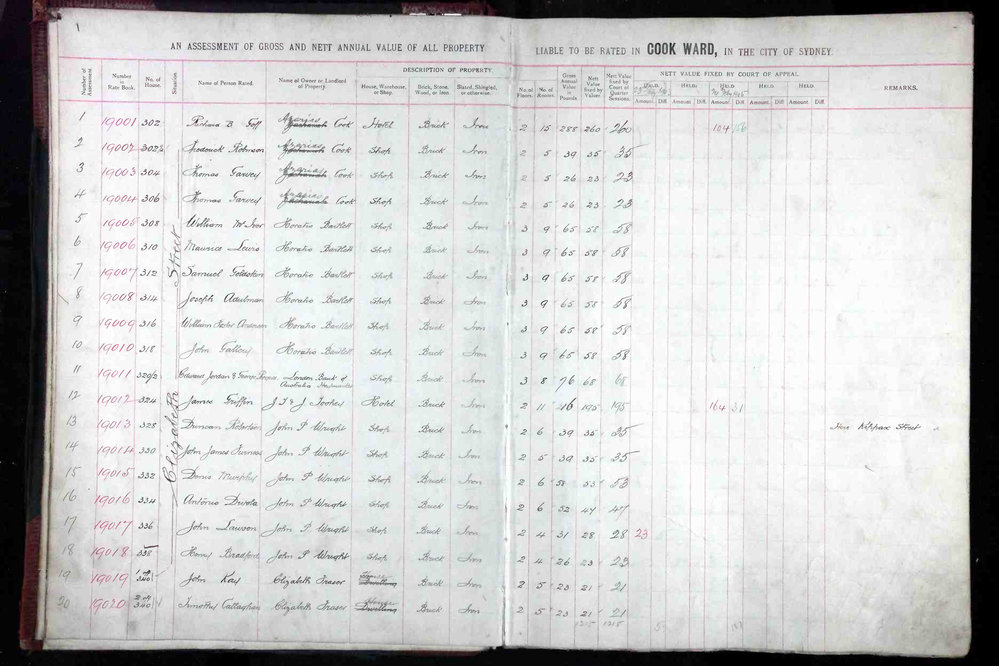 1
AN ASSESSMENT OF GROSS AND NETT ANNUAL VALUE OF ALL PROPERTY LIABLE TO BE RATED IN COOK WARD, IN THE CITY OF SYDNEY.
DESCRIPTION OF PROPERTY. NETT VALUE FIXED BY COURT OF APPEAL
Number of Assessment. Number in Rate Book. No. of House. Situation Name of Person Rated. Name of Owner or Landlord of Property. House, Warehouse, or Shop. Brick, Stone, Wood, or Iron Slated, Shingled, or otherwise. No. of Floors. No. of Rooms. Gross Annual Value in Pounds Nett Value fixed by Valuer Nett Value fixed by Court of Quarter Sessions. HELD. HELD: HELD HELD. HELD. REMARKS.
Amount. Diff. Amount. Diff. Amount. Diff. Amount. Diff. Amount. Diff.
Elizabeth Street
1 19001 302 Richard B Goff Azarias Zachariah Cook Hotel Brick Iron 2 15 288 260 260 104 156
2 19002 302½ Frederick Robinson Azarias Zachariah Cook Shop Brick Iron 2 5 39 35 35
3 19003 304 Thomas Garvey Azarias Zachariah Cook Shop Brick Iron 2 5 26 23 23
4 19004 306 Thomas Garvey Azarias Zachariah Cook Shop Brick Iron 2 5 26 23 23
5 19005 308 William McIvor Horatio Bartlett Shop Brick Iron 3 9 65 58 58
6 19006 310 Maurice Lewis Horatio Bartlett Shop Brick Iron 3 9 65 58 58
7 19007 312 Samuel Goldstein Horatio Bartlett Shop Brick Iron 3 9 65 58 58
8 19008 314 Joseph Horatio Bartlett Shop Brick Iron 3 9 65 58 58
9 19009 316 William Anderson Horatio Bartlett Shop Brick Iron 3 9 65 58 58
10 19010 318 John Horatio Bartlett Shop Brick Iron 3 9 65 58 58
11 19011 320/2 Edward Jordan & George London Bank of Australia Shop Brick Iron 3 8 76 68 68
12 19012 324 James Griffin J T & J Toohey Hotel Brick Iron 2 11 216 195 195 164 31
13 19013 328 Duncan Robertson John P Wright Shop Brick Iron 2 6 39 35 35 Here Kippax Street
14 19014 330 John James Furness John P Wright Shop Brick Iron 2 5 39 35 35
15 19015 332 Denis Murphy John P Wright Shop Brick Iron 2 6 58 53 53
16 19016 334 Antonio John P Wright Shop Brick Iron 2 6 52 47 47
17 19017 336 John Lawson John P Wright Shop Brick Iron 2 4 31 28 28 23
18 19018 338 Henry Bradford John P Wright Shop Brick Iron 2 4 26 23 23
19 19019 1 of 340 John Kay Elizabeth Fraser House Dwelling Brick Iron 2 5 23 21 21
20 19020 2 of 340 Timothy Callaghan Elizabeth Fraser House Dwelling Brick Iron 2 5 23 21 21
1215 1215 5